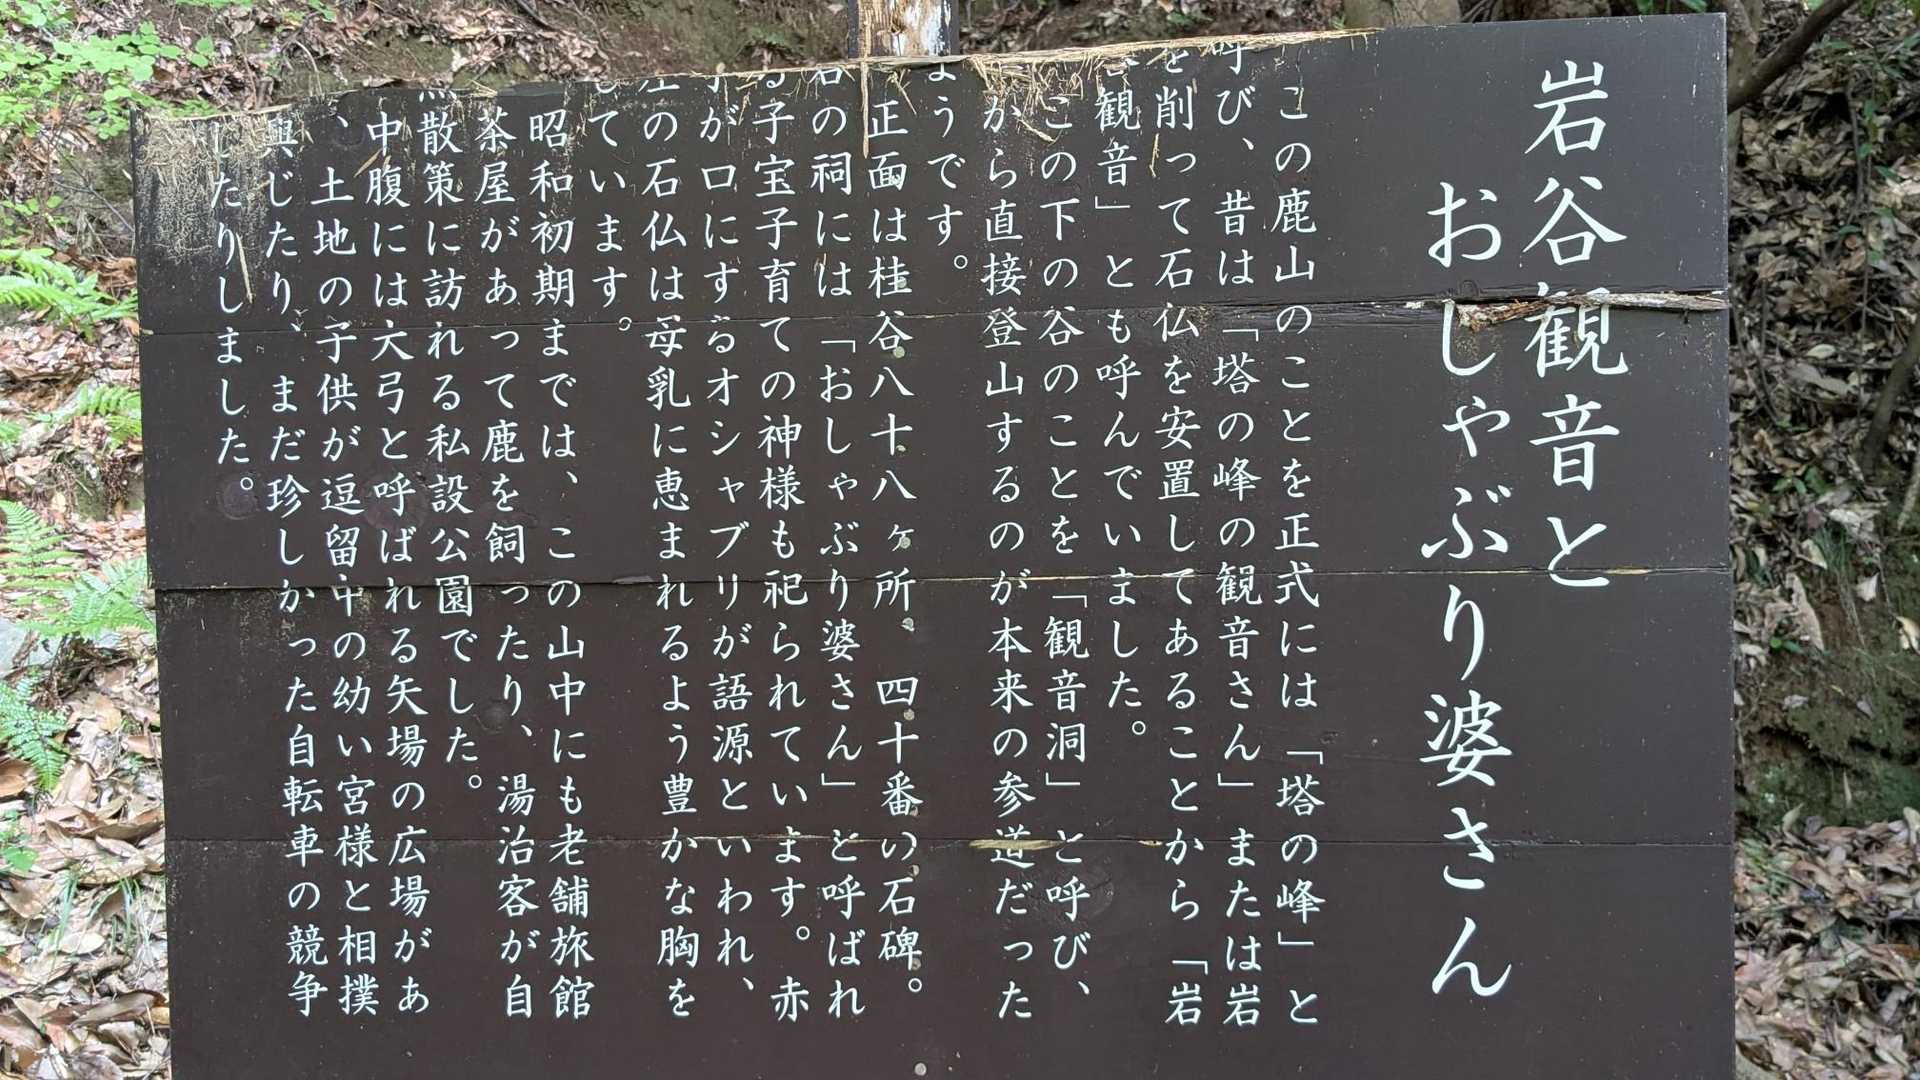 岩谷観音と
おしゃぶり婆さん
この鹿山のことを正式には「塔の峰」と
呼び、昔は「塔の峰の観音さん」または岩
を削って石仏を安置してあることから「岩
観音」とも呼んでいました。
この下の谷のことを「観音洞」と呼び、
から直接登山するのが本来の参道だった
ようです。
正面は桂谷八十八ヶ所、四十番の石碑。
右の祠には「おしゃぶり婆さん」と呼ばれ
る子宝子育ての神様も祀られています。赤
子が口にするオシャブリが語源といわれ、
左の石仏は母乳に恵まれるよう豊かな胸を
しています。
昭和初期までは、この山中にも老舗旅館
茶屋があって鹿を飼ったり、湯治客が自
散策に訪れる私設公園でした。
中腹には大弓と呼ばれる矢場の広場があ
、土地の子供が逗留中の幼い宮様と相撲
興じたり、まだ珍しかった自転車の競争
したりしました。